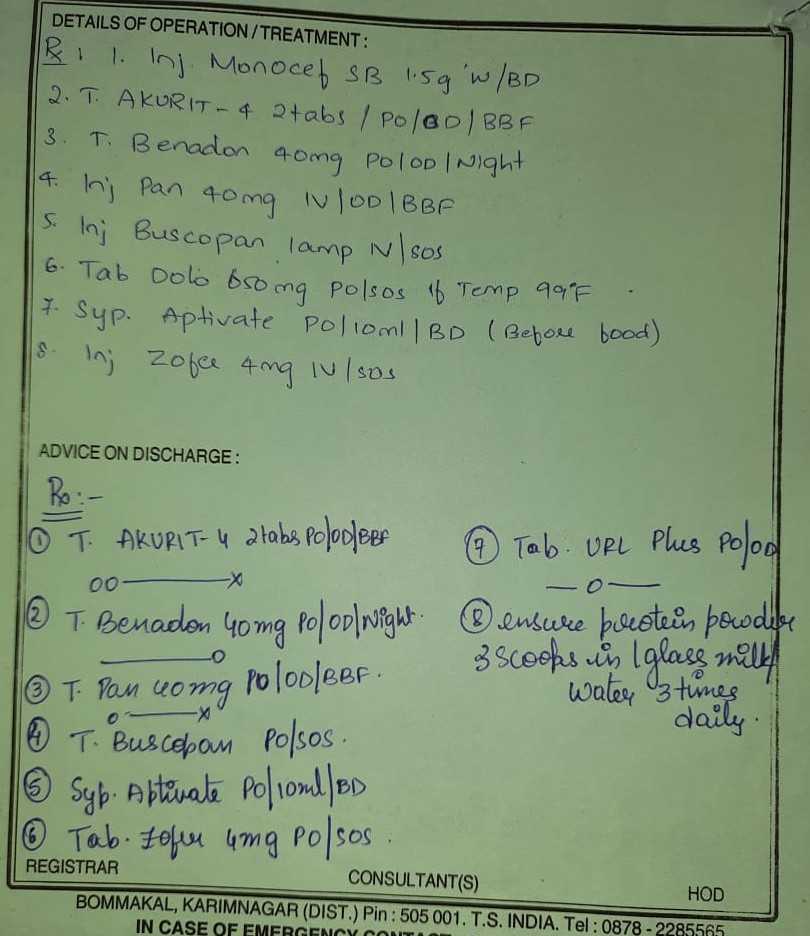 DETAILS OF OPERATION / TREATMENT :
Rx 1. Inj. Monocef SB 1.5g IV/BD
2. T. AKURIT-4 2tabs / PO/OD/BBF
3. T. Benadon 40mg PO/OD/Night
4. Inj Pan 40mg IV/OD/BBF
5. Inj Buscopan 1amp IV/SOS
6. Tab Dolo 650mg PO/SOS if Temp 99°F
7. Syp. Aptivate PO/10ml/BD (Before food)
8. Inj Zofer 4mg IV/SOS
ADVICE ON DISCHARGE :
Rx:-
① T. AKURIT-4 2tabs PO/OD/BBF
00——x
② T. Benadon 40mg PO/OD/Night.
——0
③ T. Pan 40mg PO/OD/BBF.
0——x
④ T. Buscopan PO/SOS.
⑤ Syp. Aptivate PO/10ml/BD
⑥ Tab. Zofer 4mg PO/SOS.
⑦ Tab. URL Plus PO/OD
—0—
⑧ ensure protein powder
3 scoops in 1 glass milk/
water 3 times
daily.
REGISTRAR
CONSULTANT(S)
HOD
BOMMAKAL, KARIMNAGAR (DIST.) Pin : 505 001. T.S. INDIA. Tel : 0878 - 2285565
IN CASE OF EMERGENCY